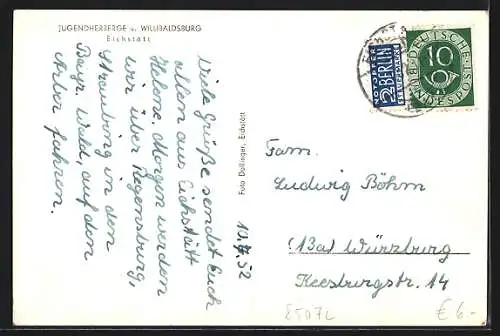 JUGENDHERBERGE u. WILLIBALDSBURG
Eichstätt
Viele Grüße sendet Euch
allen aus Eichstätt
Helene. Morgen werden
wir über Regensburg,
Straubing in den
Bayr. Wald, auf den
Arber fahren.
10.7.52
Foto Dollinger, Eichstätt
NOTOPFER
2 BERLIN
STEUERMARKE
DEUTSCHE
BUNDESPOST
10
Fam.
Ludwig Böhm
(13a) Würzburg
Keesburgstr. 14
€ 6-